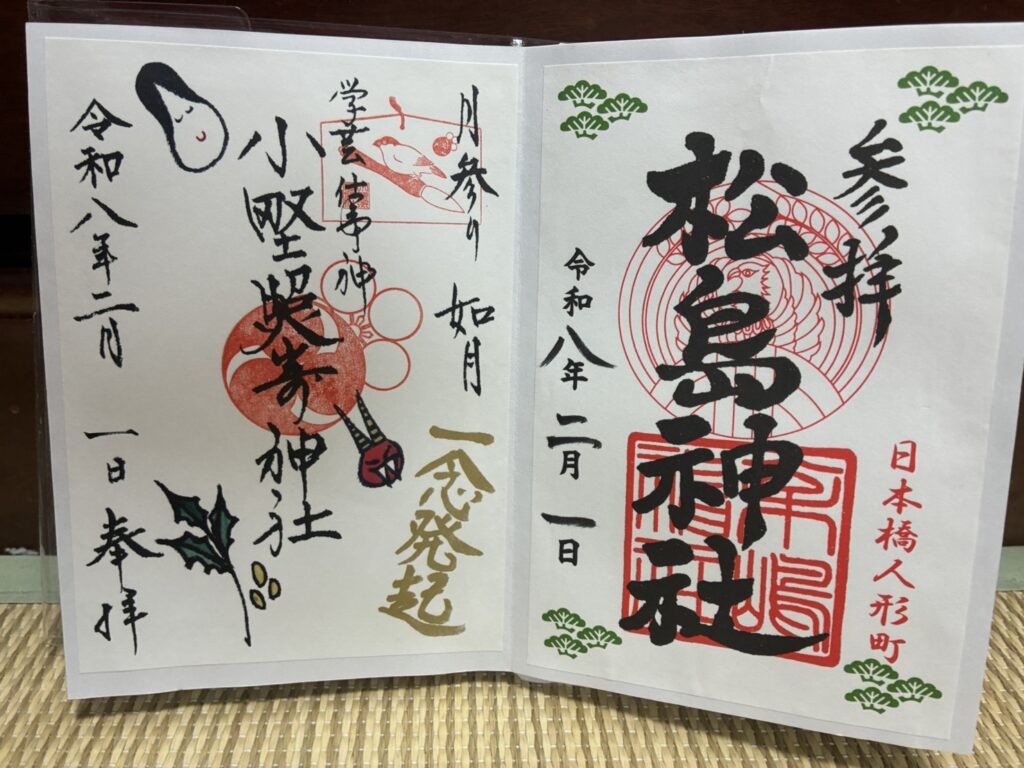 参拝
松島神社
日本橋人形町
令和八年二月一日
月参り 如月
一念発起
学芸仕事神
小野照崎神社
令和八年二月一日 奉拝